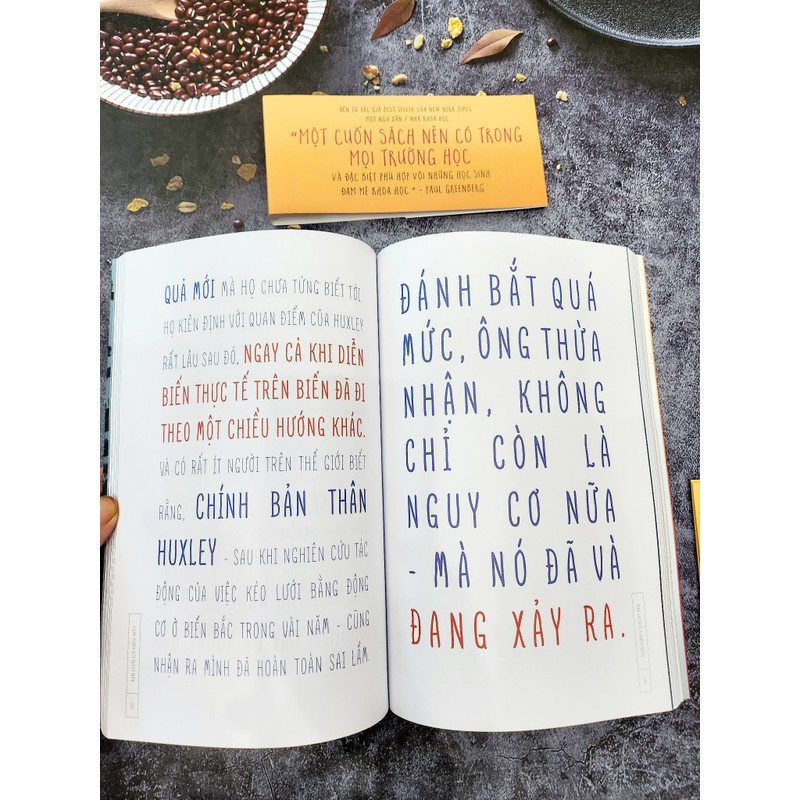 ĐẾN TỪ TÁC GIẢ BEST SELLER CỦA NEW YORK TIMES
MỘT NGƯ DÂN / NHÀ KHOA HỌC.
"MỘT CUỐN SÁCH NÊN CÓ TRONG
MỌI TRƯỜNG HỌC
VÀ ĐẶC BIỆT PHÙ HỢP VỚI NHỮNG HỌC SINH
ĐAM MÊ KHOA HỌC." - PAUL GREENBERG
QUẢ MỚI MÀ HỌ CHƯA TỪNG BIẾT TỚI.
HỌ KIÊN ĐỊNH VỚI QUAN ĐIỂM CỦA HUXLEY
RẤT LÂU SAU ĐÓ, NGAY CẢ KHI DIỄN
BIẾN THỰC TẾ TRÊN BIỂN ĐÃ ĐI
THEO MỘT CHIỀU HƯỚNG KHÁC.
VÀ CÓ RẤT ÍT NGƯỜI TRÊN THẾ GIỚI BIẾT
RẰNG, CHÍNH BẢN THÂN
HUXLEY - SAU KHI NGHIÊN CỨU TÁC
ĐỘNG CỦA VIỆC KÉO LƯỚI BẰNG ĐỘNG
CƠ Ở BIỂN BẮC TRONG VÀI NĂM - CŨNG
NHẬN RA MÌNH ĐÃ HOÀN TOÀN SAI LẦM.
ĐÁNH BẮT QUÁ
MỨC, ÔNG THỪA
NHẬN, KHÔNG
CHỈ CÒN LÀ
NGUY CƠ NỮA
- MÀ NÓ ĐÃ VÀ
ĐANG XẢY RA.